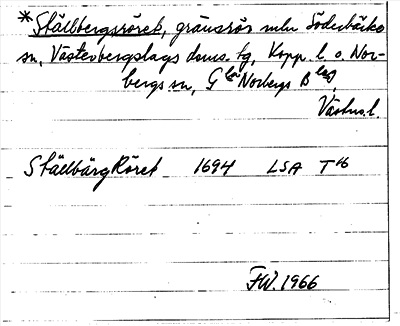 *Ställbergsröret, gränsrös mln Söderbärke
sn, Västerbergslags doms. tg, Kopp. l. o. Nor-
bergs sn, G:la Norbergs Blag,
Västm. l.
Ställbärg Röret 1694 LSA T 16
FW. 1966